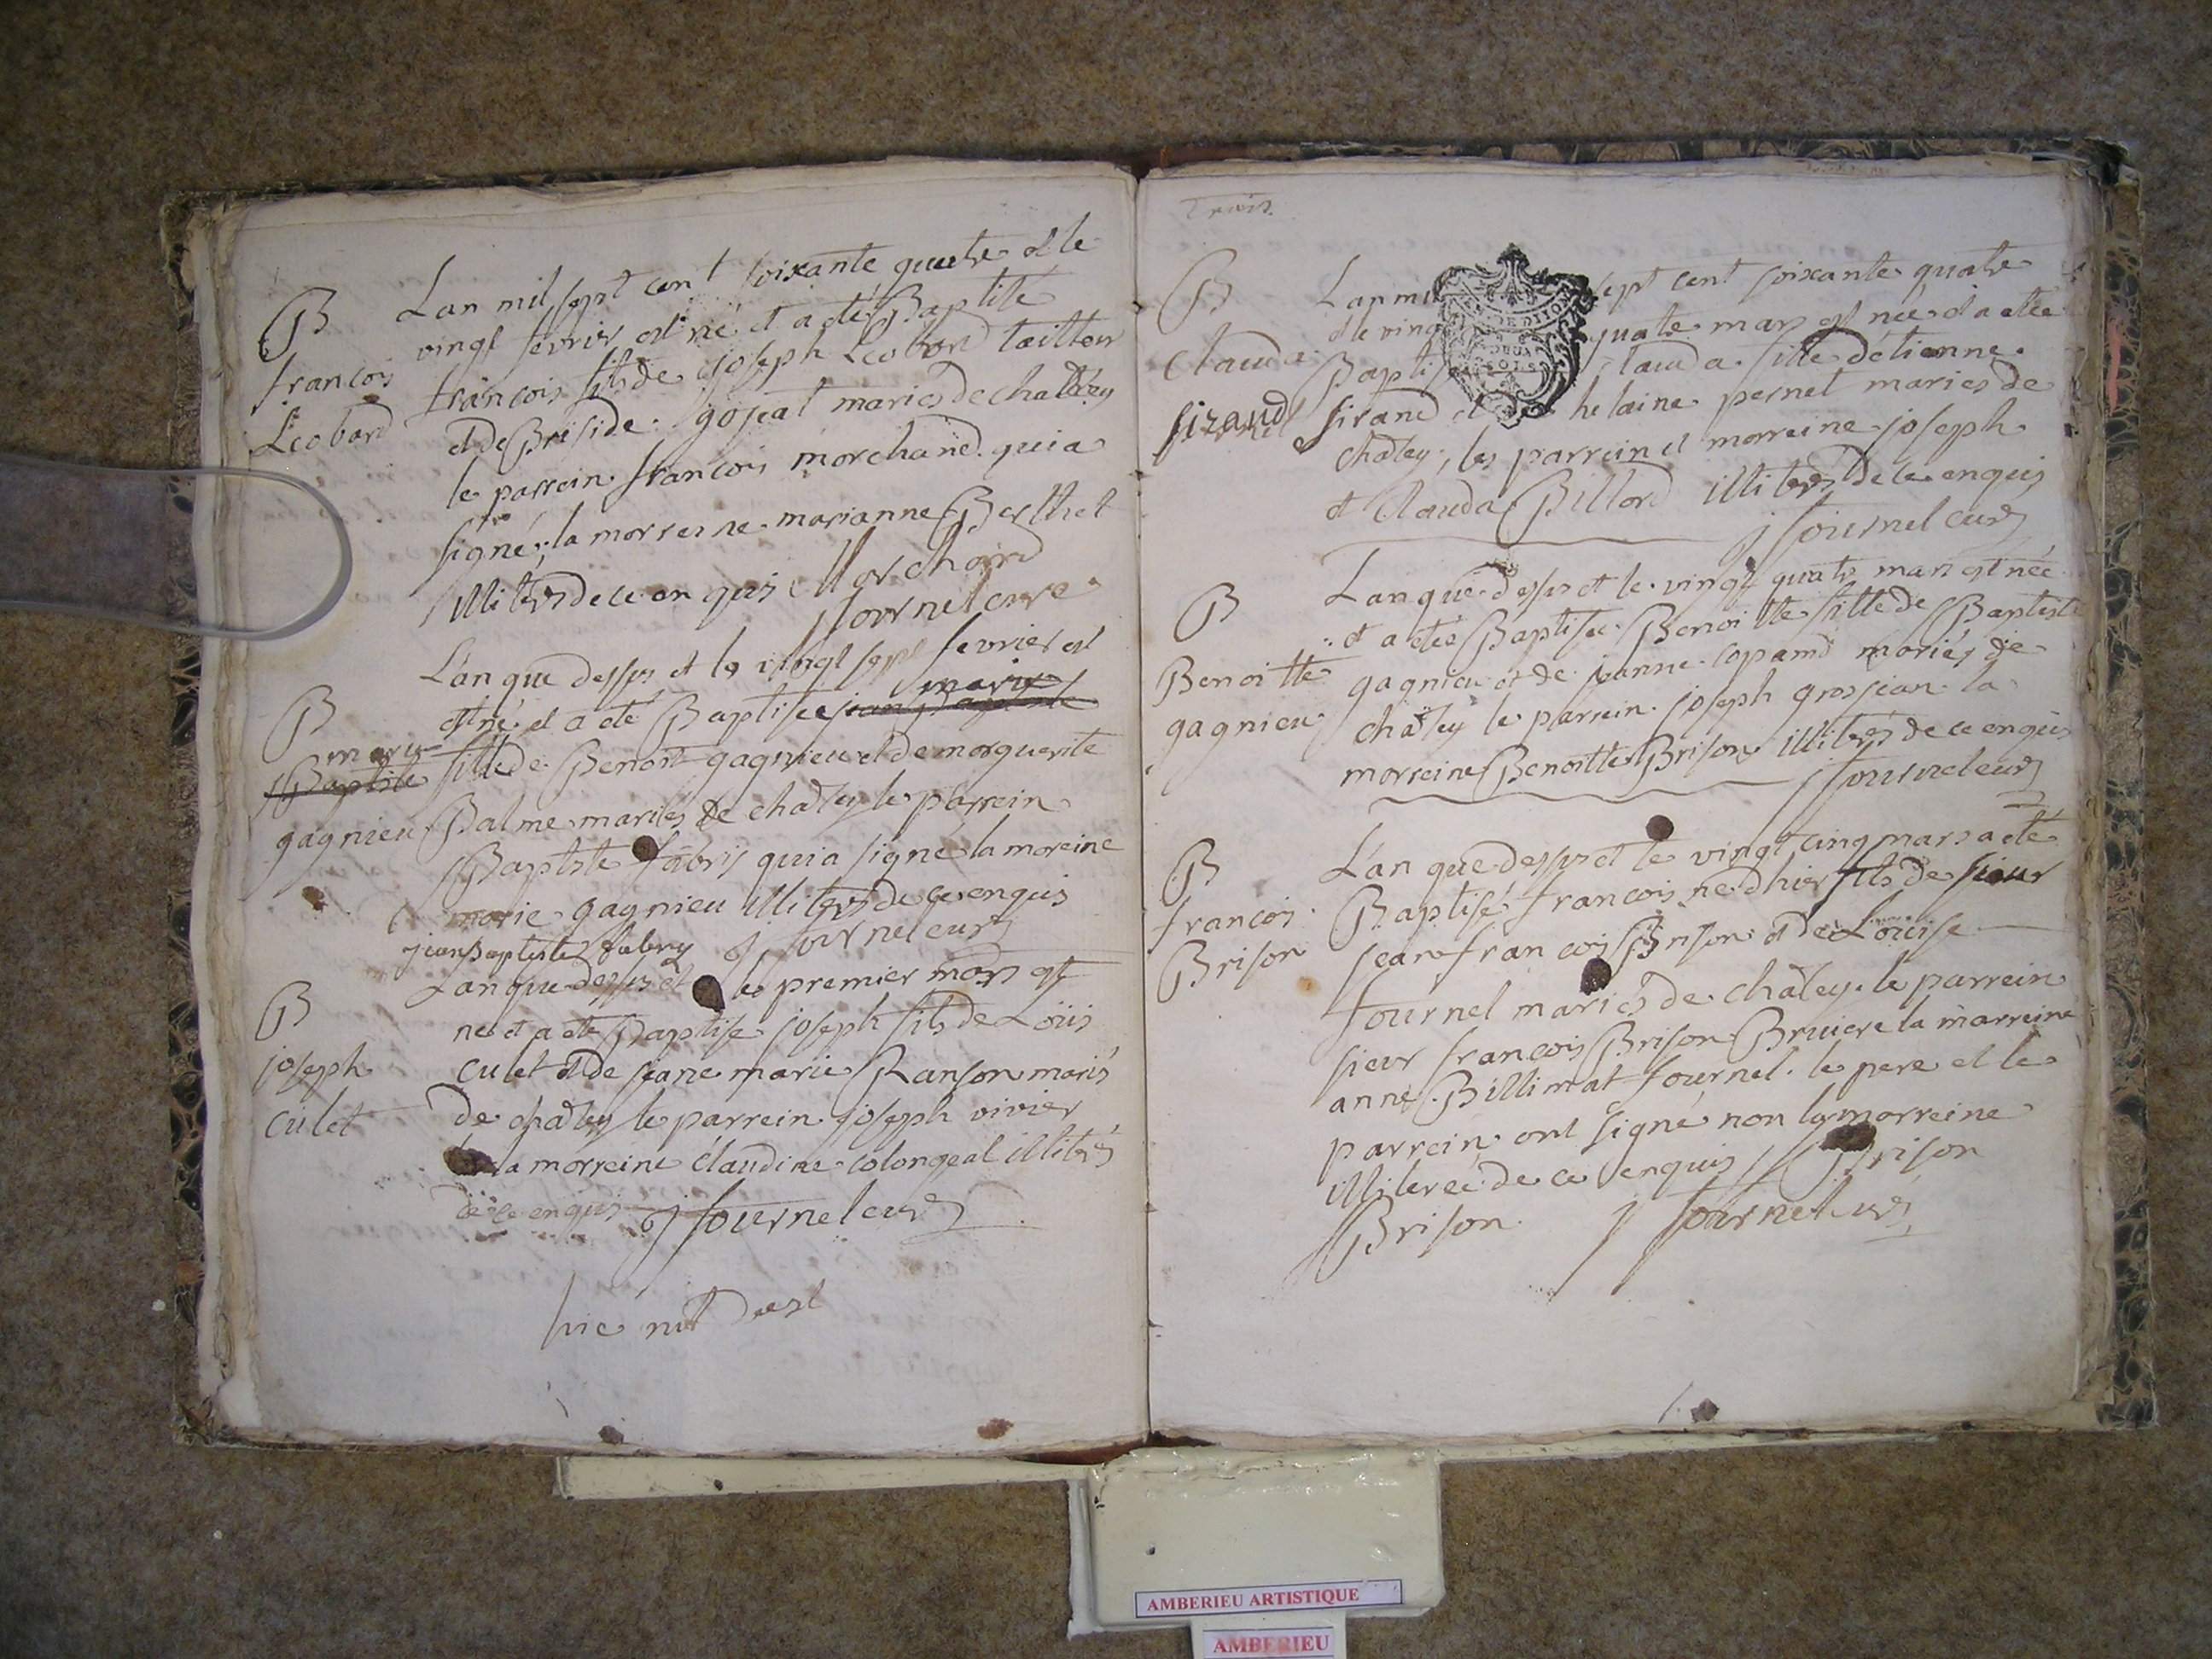 B
francois
Leobard
Lan mil sept cent soixante quatre et le
vingt fevrier est né et a eté Baptisé
francois fils de joseph Leobard tailleur
et de Briside gojeat mariés de chatley
le parrein francois morchand qui a
signé, la morreine marianne Berthet
illiterés de ce enquis Morchand
j fournel curé
B
marie
Baptiste
gagnieu
Lan que dessus et le vingt sept fevrier est
marie
est né et a eté Baptisée jean Baptiste
fille de Benoit gagnieu et de morguerite
Palme mariés de chatley le parrein
Baptiste fabris qui a signé la moreine
marie gagnieu illiterés de ce enquis
jean Baptiste fabry j fournel curé
B
joseph
culet
Lan que dessus et le premier mars est
né et a eté Baptisé joseph fils de Loüis
culet et de jeane marie Ranson mariés
de chatley le parrein joseph vivier
la morreine Claudine colongeat illiterés
de ce enquis j fournel curé
hic nul deest
Trois
B
Clauda
sirand
Lan mil sept cent soixante quatre
et le vingt quatre mars est née et a etée
Baptisée Clauda fille détienne
sirand et helaine pernet mariés de
chatley, les parrein et morreine joseph
et Clauda Billord illiterés de ce enquis
j fournel curé
B
Benoitte
gagnieu
Lan que dessus et le vingt quatre mars est née
et a etée Baptisée Benoitte fille de Baptiste
gagnieu et de janne copand mariés de
chatley le parrein joseph grosjean la
morreine Benoitte Brison illiterés de ce enquis
j fournel curé
B
francois
Brison
Lan que dessus et le vingt cinq mars a eté
Baptisé francois né d'hier fils de sieur
jean francois Brison et de Loüise
fournel mariés de chatley le parrein
sieur francois Brison Bruiere la marreine
anne Billimat fournel le pere et le
parrein ont signé non la morreine
illiterée de ce enquis Brison
Brison j fournel curé
AMBERIEU ARTISTIQUE
AMBERIEU